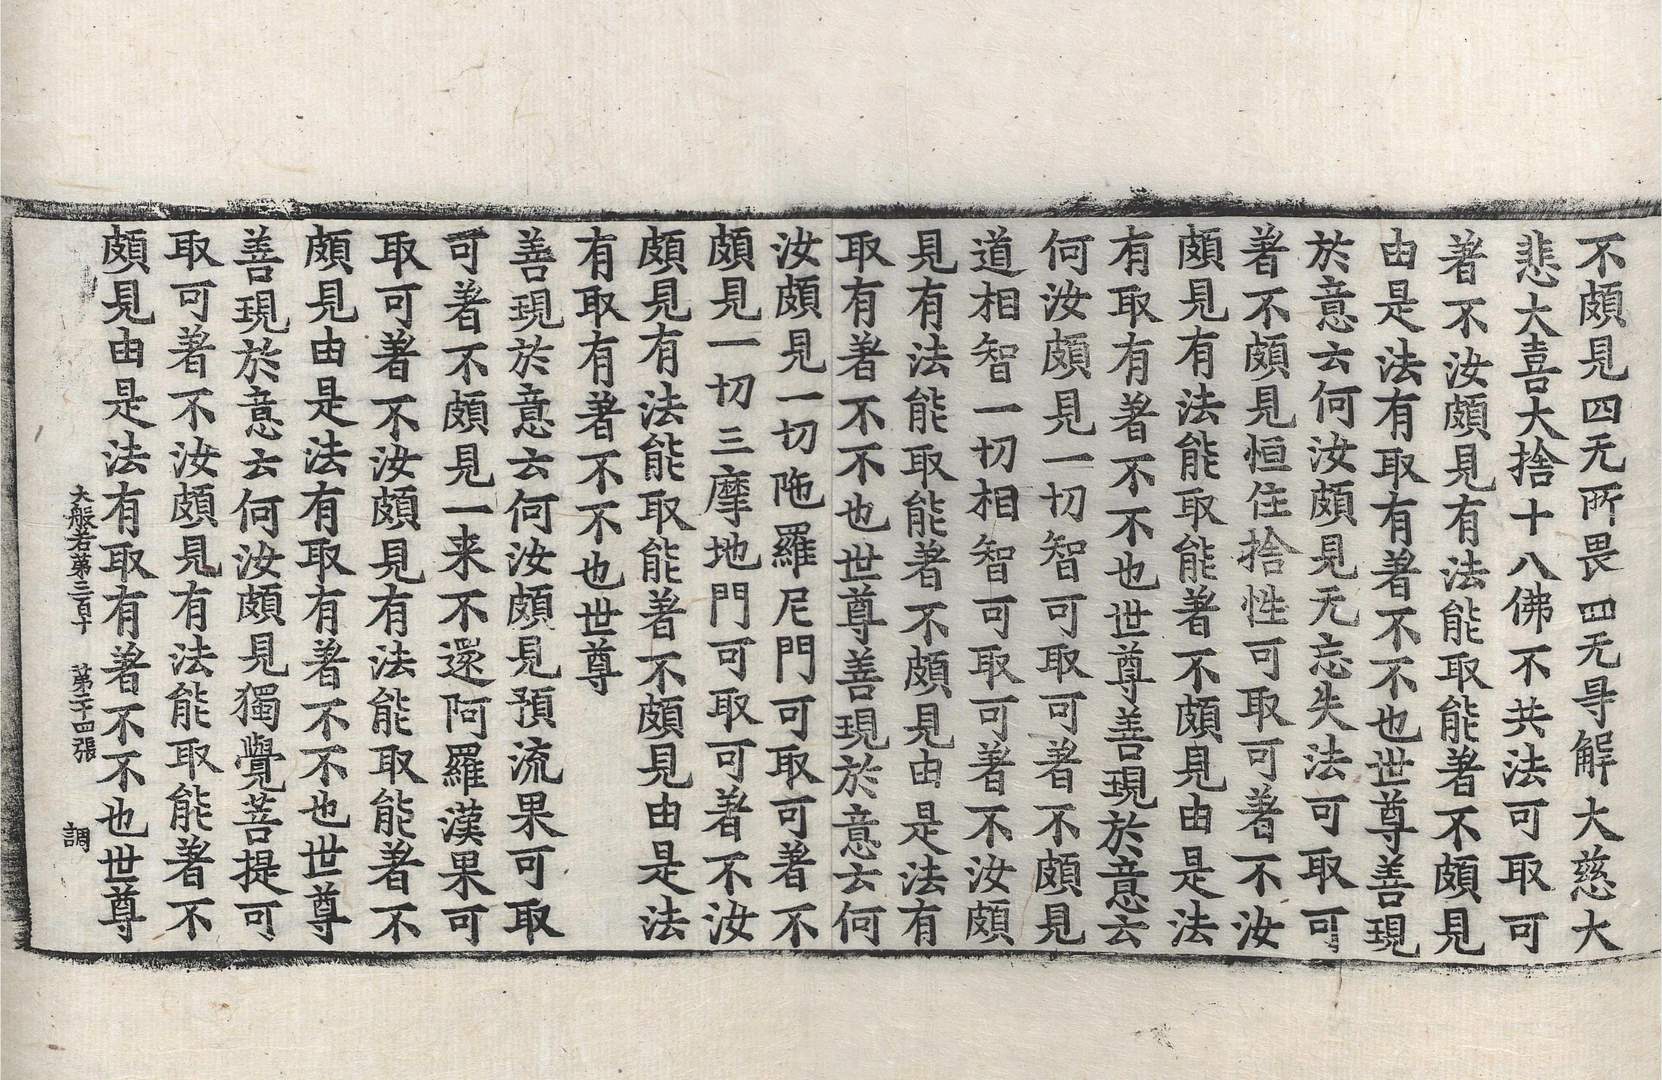 不頗見四无所畏四无㝵解大慈大
悲大喜大捨十八佛不共法可取可
著不汝頗見有法能取能著不頗見
由是法有取有著不不也世尊善現
於意云何汝頗見无忘失法可取可
著不頗見恒住捨性可取可著不汝
頗見有法能取能著不頗見由是法
有取有著不不也世尊善現於意云
何汝頗見一切智可取可著不頗見
道相智一切相智可取可著不汝頗
見有法能取能著不頗見由是法有
取有著不不也世尊善現於意云何
汝頗見一切陁羅尼門可取可著不
頗見一切三摩地門可取可著不汝
頗見有法能取能著不頗見由是法
有取有著不不也世尊
善現於意云何汝頗見預流果可取
可著不頗見一来不還阿羅漢果可
取可著不汝頗見有法能取能著不
頗見由是法有取有著不不也世尊
善現於意云何汝頗見獨覺菩提可
取可著不汝頗見有法能取能著不
頗見由是法有取有著不不也世尊
大般若第三百十 第二十四張 調